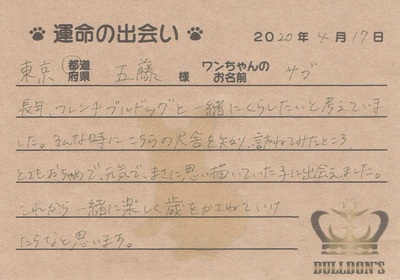 運命の出会い
2020年4月17日
東京 都道府県 五藤 様 ワンちゃんのお名前 サブ
長年、フレンチブルドッグと一緒にくらしたいと考えていま
した。そんな時にこちらの犬舎を知り、訪ねてみたところ
とてもおちゃめで、元気で、まさに思い描いていた子に出会えました。
これから一緒に楽しく歳をかさねていけ
たらなと思います。
BULLDON'S